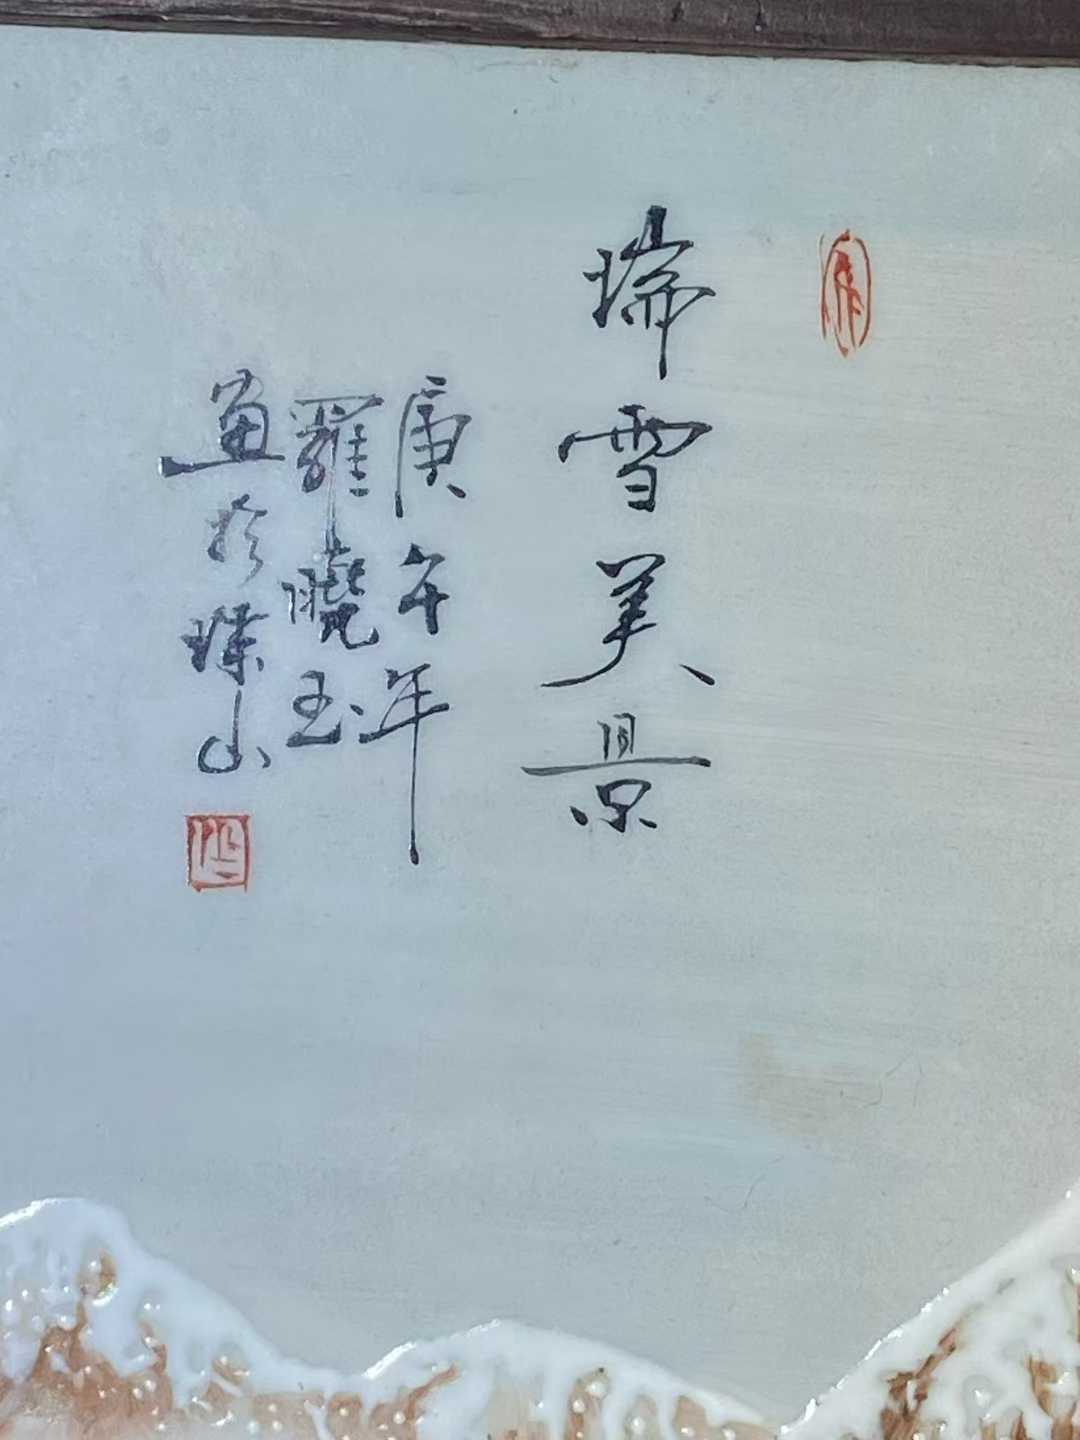 瑞雪美景
庚午年
羅曉玉
畫於珠山